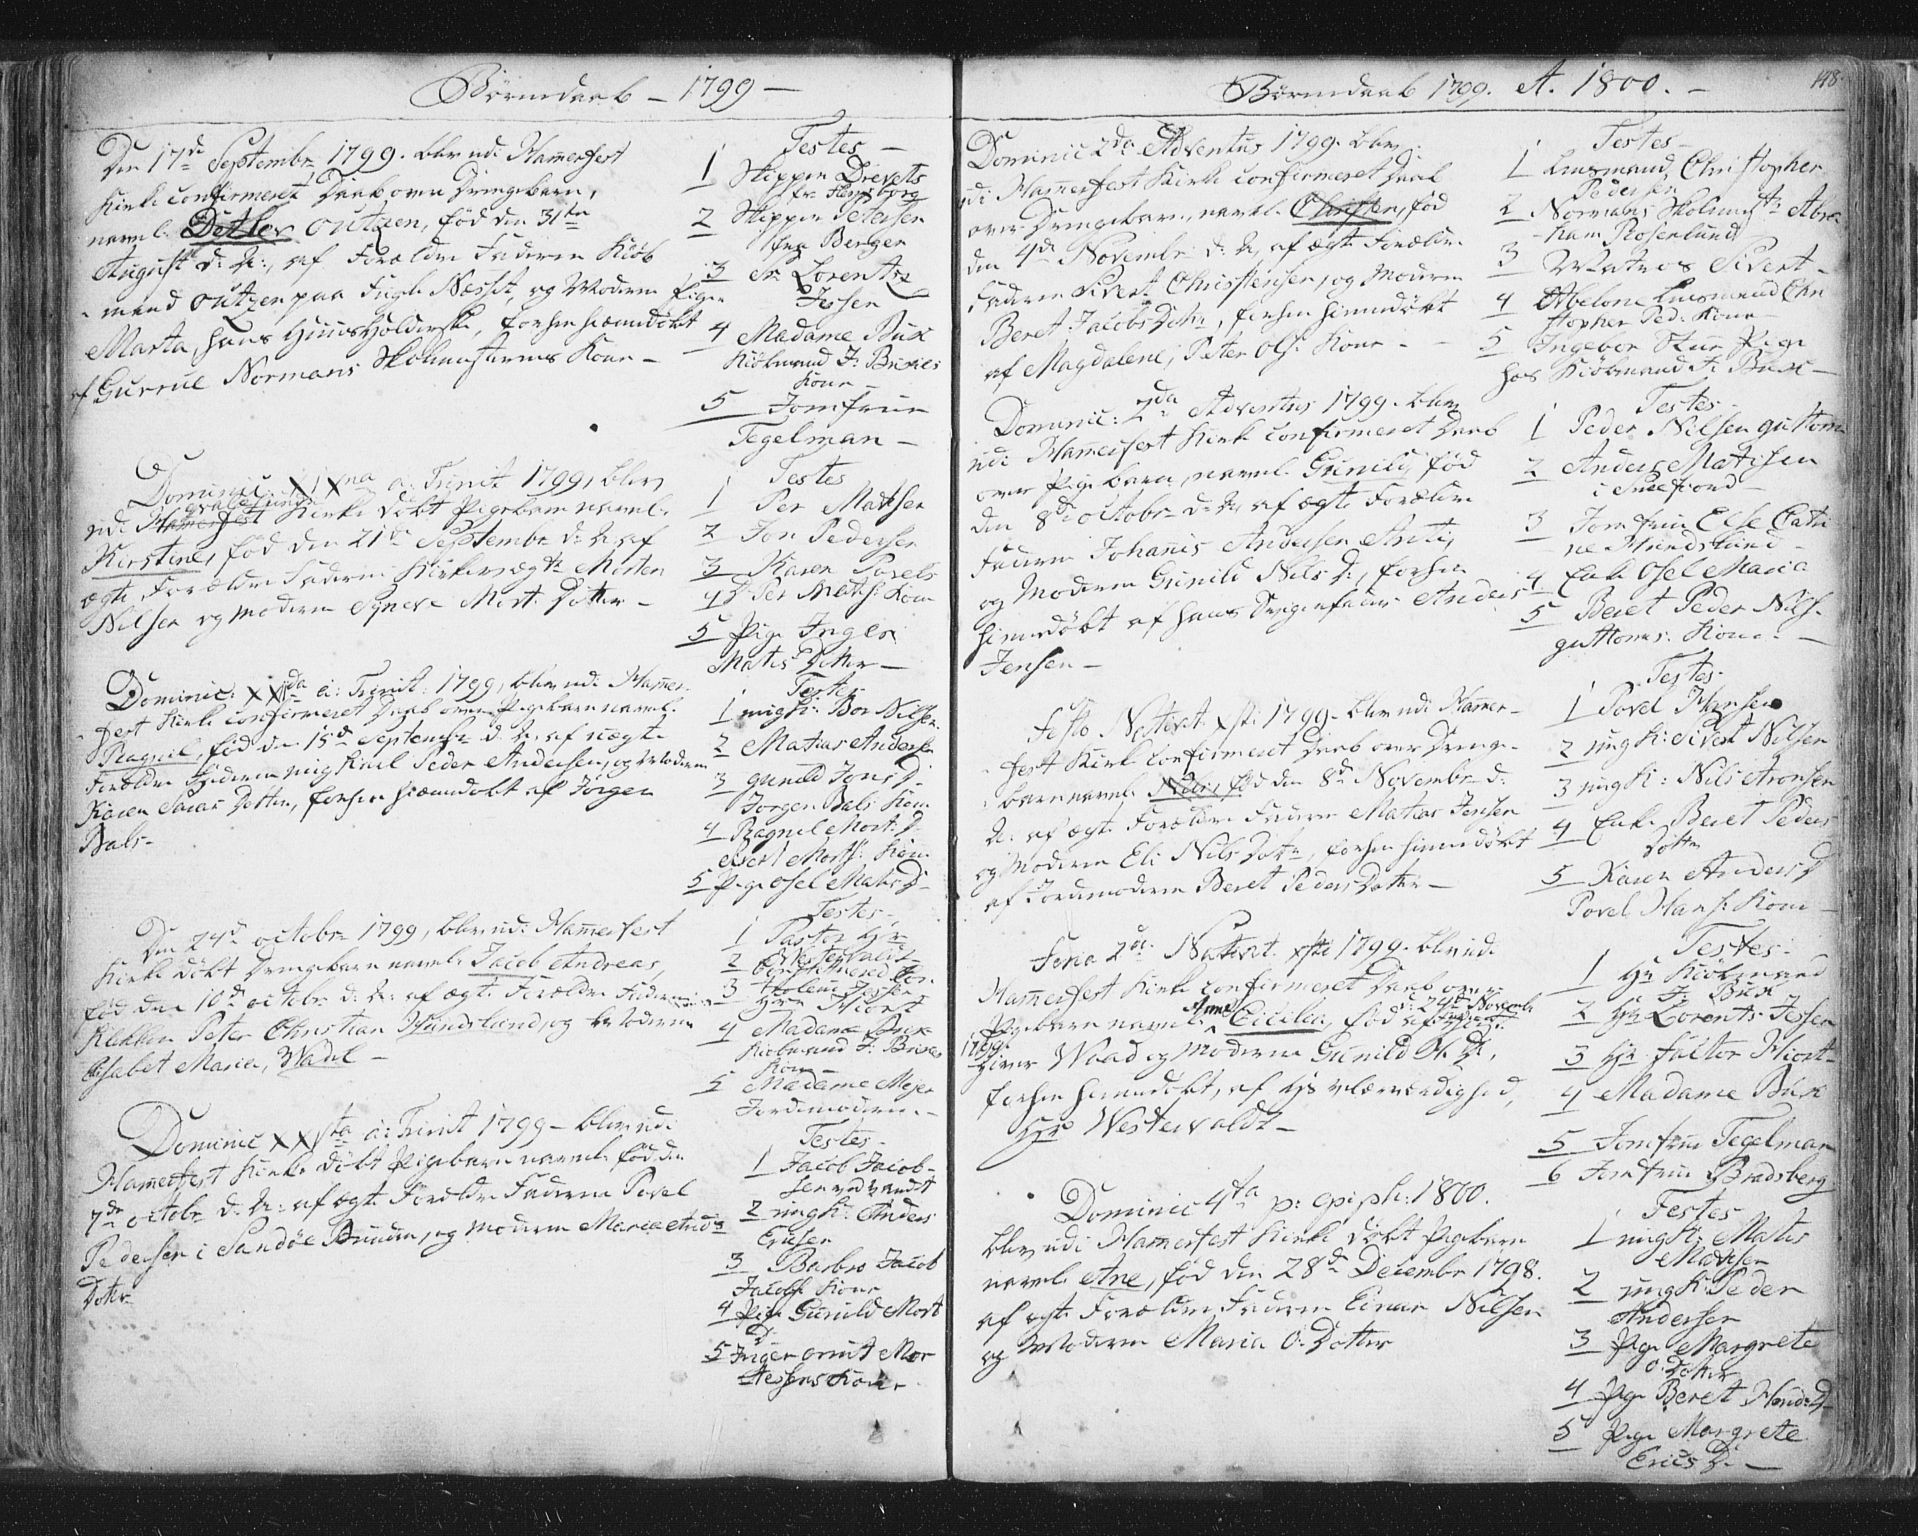 Børnedaab - 1799 -
Den 17de Septembr 1799. blev udi Hamerfest
Kirke confirmeret Daab over Drengebarn,
navnl. Detlev Outzen, född den 31te
August d: A:, af Forældre Faderen Kiöb
mand Outzen paa Fugle Næsset, og Moderen Pigen
Marta, hans Huusholderske, forhen hiemedöbt
af Gurrul Normans Skolmesterens Kone -
Testes -
1 Skipper Drevets
fra Flensborg
2 Skipper Petersen
fra Bergen
3 Sr Lorentze
Jessen
4 Madame Bux
Kiöbmand J: Buxes
Kone -
5 Jomfrue
Tegelman -
Dominic: XIXna a: Trinit 1799, blev
udi Hamerfest Kirke döbt Pigebarn navnl.
Kirstine, föd den 21de Septembr d: A af
ægte Forældre Faderen Kirkeværgen Morten
Nilsen og Moderen Mort: Dotter -
Testes
1 Per Matsen
2 Jon Pedersen
3 Karen Povels
D
4 Per Mats: Kone
5 Pige Inger
Matis Dotter -
Dominic: XXda a: Trinit: 1799, blev udi Hamer-
fest Kirke confirmeret Daab over Pigebarn navnl.
Ragnil, föd den 15de Septembr d: A: af uægte
Forældre Faderen ung Karl Peder Andersen, og Moderen
Karen Saras Dotter, forhen hiemedobt af Jörgen
Bals -
Testes
1 ung K: Boe Nilsen
2 Matias Anders
3 Gunild Jons D
Jorgen Bals Kone
4 Ragnil Mort: D
Mortes: Kone
5 Pige Osel Mats D -
Den 24de octobr 1799, blev udi Hamerfest
Kirke döbt Drengebarn navnl. Jacob Andreas,
föd den 10de octobr d: A: af ægte Forældre Faderen
Klokker Peter Christian Hundslund, og Moderen
Elsabet Maria, Wadel -
Testes -
1 Pastor Hr
Westervaldt -
2 Constituered
Jessen
3 Hr Hiort
4 Madame Bux
Kiobmand J: Buxes
Kone -
5 Madame Mejer
Jordemoderen -
Dominic XXIta a: Trinit 1799 - blev udi
Hamerfest Kirke döbt Pigebarn navnl. föd den
7de octobr d: A: af ægte Forældre Faderen Povel
Pedersen i Sandöe Bunden, og Moderen Maria Anders
Dotter
Testes -
1 Jacob Jacob-
sen
2 ung K: Anders
Ericsen
3 Barbro Jacob
Jacobs: Kone
4 Pige Gunild Mort
D -
5 Inger Mor
tessens Kone
Børnedaab 1799. A. 1800. -
148
Dominic 2da Adventus 1799. blev
udi Hamerfest Kirke confirmeret Daab
over Drengebarn, navnl. Christen, föd
den 4de Novembr d: A, af ægte Forældre
Faderen Sivert Christensen, og Moderen
Beret Jacobs Dotr, forhen hiemedöbt
af Magdalene, Peter Ols: Kone - -
Testes -
1 Lensmand Christopher
Pedersen
2 Normans Skolmestr Abra-
ham Rosenlund
3 Matros Sivert -
4 Abelone Lensmand Chri
stopher Ped: Kone -
5 Ingebor Stur Pige
hos Kiöbmand J: Bux -
Dominic: 2da Adventus 1799. blev
udi Hamerfest Kirke confirmeret Daab
over Pigebarn, navnl. Gunild, föd
den 8de octobr d: A, af ægte Forældre
Faderen Johanis Andersen
og Moderen Gunild Nils D:, forhen
hiemedöbt af hans Anders
Jensen -
Testes -
1 Peder Nilsen guttorm
2 Anders Matisen
i Sneefiord -
3 Jomfrue Else Catri
ne Hundslund -
4 Enke Osel Maria
5 Beret Peder Nils:
guttorms: Kone -
Festo Nativit. xsti 1799. blev udi Hamer-
fest Kirke confirmeret Daab over Drenge-
barn navnl. Nils, föd den 8de Novembr d:
A: af ægte Forældre Faderen Matias Jensen
og Moderen Eli Nils Dotr, forhen hiemedöbt
af Jordemoderen Beret Peders Dotter -
Testes -
1 Povel Hansen
2 ung K: Sivert Nilsen
3 ung K: Nils Aronsen
4 Enke Beret Peders
Dotter
5 Karen Anders D
Povel Hans: Kone -
Feria 2da Nativit. xsti 1799. blev udi
Hamerfest Kirke confirmeret Daab over
Pigebarn navnl. Anne Cicilia, föd d: 24de Novembr
1799. af
Iver Waad og Moderen Gunild O: D:,
forhen hiemedöbt, af Hs velærværdighed,
Hr Westervaldt -
Testes -
1 Hr Kiöbmand
J: Bux
2 Hr Lorents Jessen
3 Hr factor Hiort -
4 Madame Bux
5 Jomfrue Tegelman
6 Jomfrue Bradsberg
Dominic 4ta p: epiph: 1800.
blev udi Hamerfest Kirke döbt Pigebarn
navnl. Ane, föd den 28de Decembr 1798.
af ægte Forældre, Faderen Einar Nilsen
og Moderen Maria O: Dotter
Testes
1 ung K: Mates
Madsen
2 ung K: Peder
Andersen
3 Pige Margrete
O: Dotter
4 Pige Beret Hend: D -
5 Pige Margrete
Erics D: -